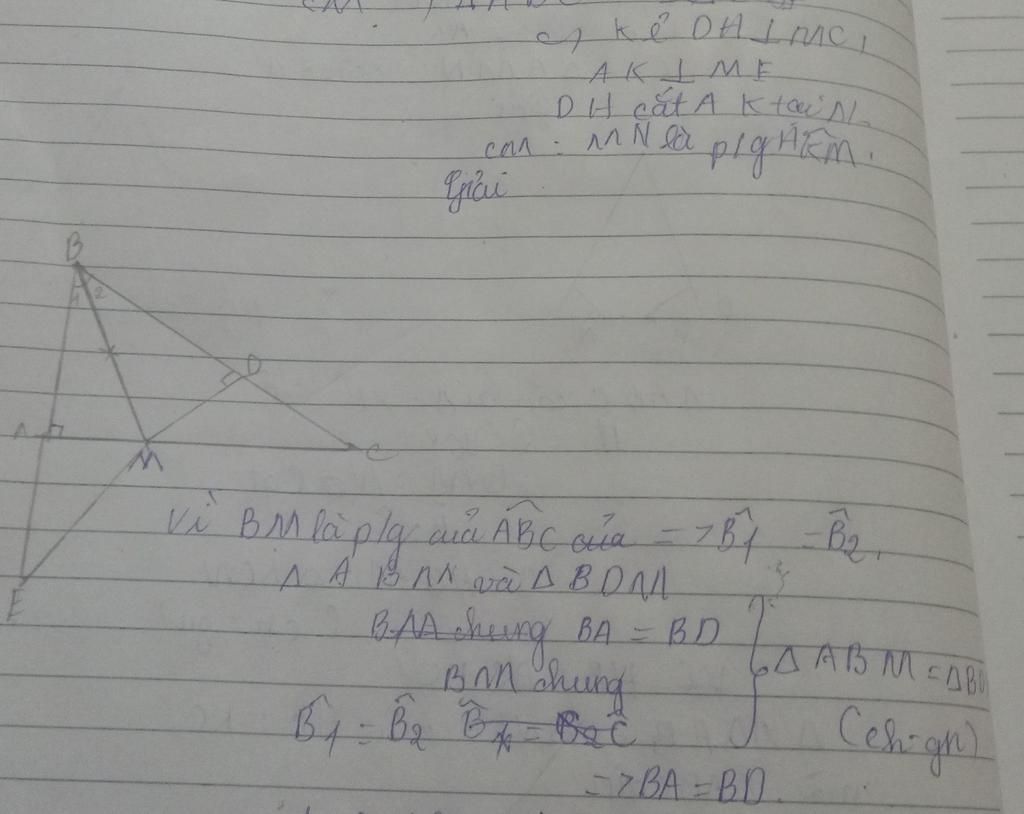 c, kẻ DH⊥MC,
AK ⊥ ME
DH cắt AK tại N.
cm : MN là p/g HK̂M.
Giải
B
1 2
D
A
M
C
E
Vì BM là p/g của ABĈ của => B̂1 = B̂2.
Δ ABM và Δ BDM
BM chung BA = BD
BM chung
Δ ABM = ΔBD
B̂1 = B̂2
(ch-gn)
=> BA = BD.